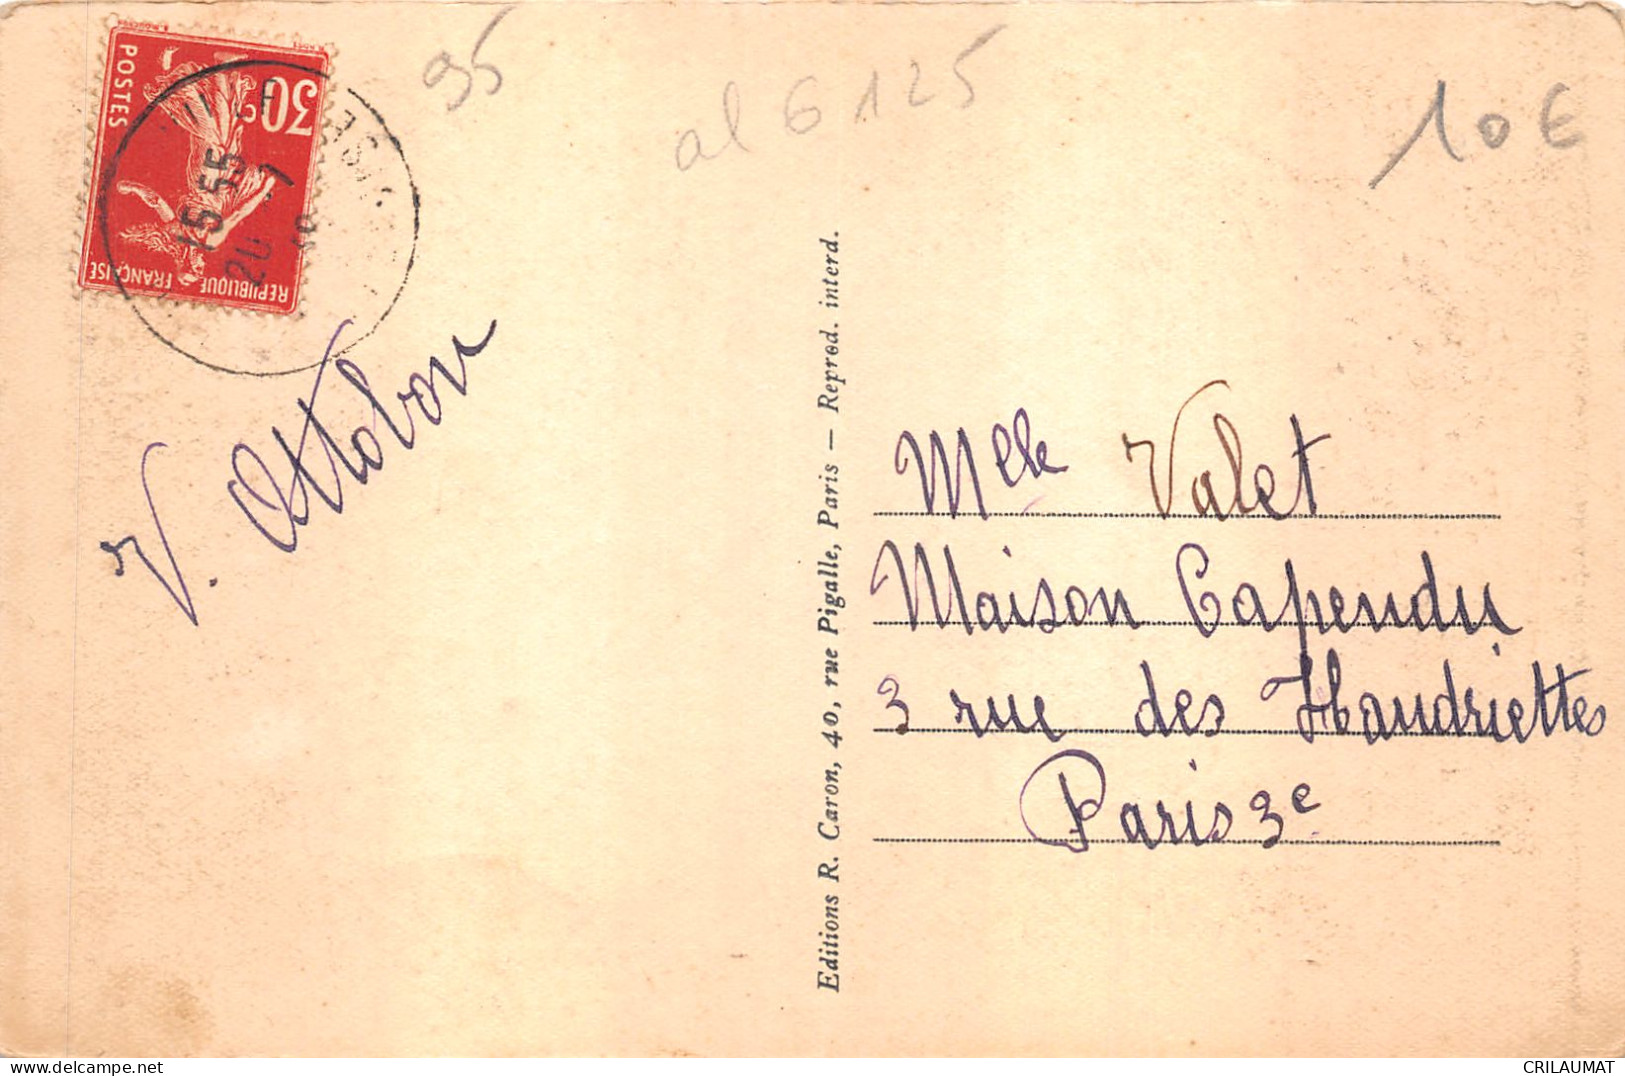 POSTES
30c
REPUBLIQUE FRANÇAISE
15 55
20 - 7
95
al 6125
10 €
V. Ottobon
Editions R. Caron, 40, rue Pigalle, Paris — Reprod. interd.
Mlle Valet
Maison Capendu
3 rue des Haudriettes
Paris 3e
CRILAUMAT